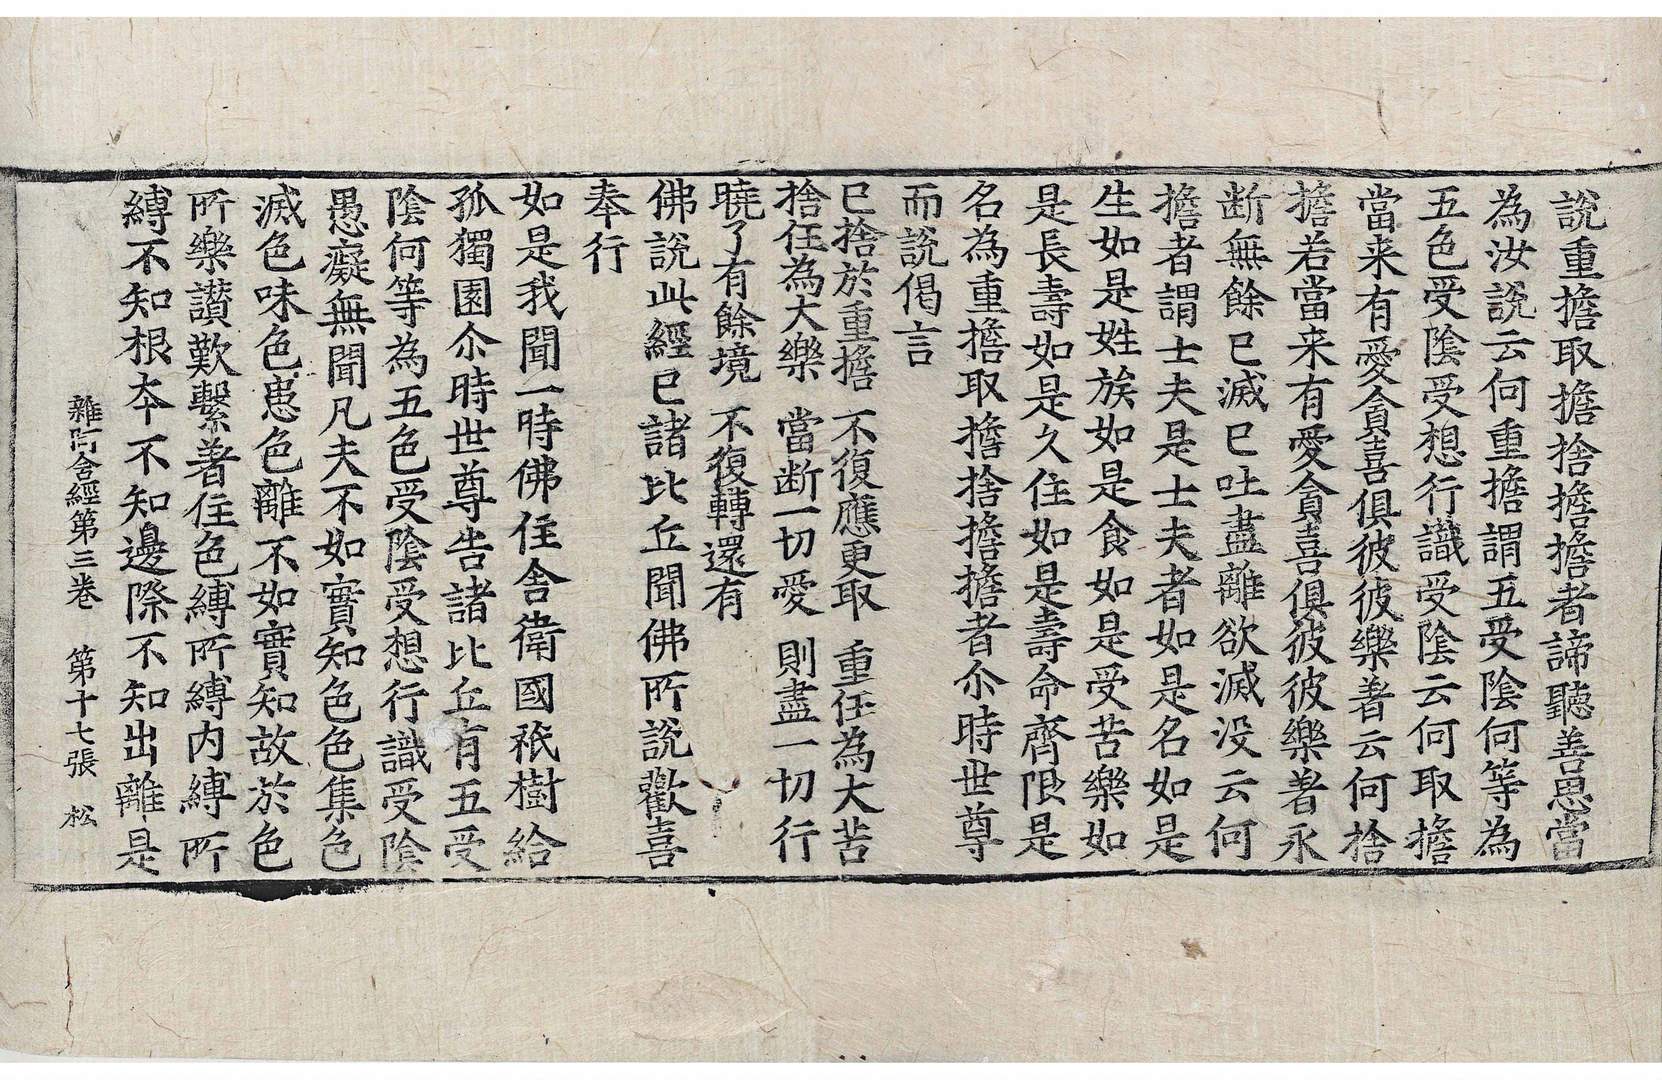 說重擔取擔捨擔擔者諦聽善思當
為汝說云何重擔謂五受隂何等為
五色受隂受想行識受隂云何取擔
當来有愛貪喜俱彼彼樂著云何捨
擔若當来有愛貪喜俱彼彼樂著永
断無餘已滅已吐盡離欲滅没云何
擔者謂士夫是士夫者如是名如是
生如是姓族如是食如是受苦樂如
是長壽如是久住如是壽命齊限是
名為重擔取擔捨擔擔者尒時世尊
而說偈言
已捨於重擔 不復應更取 重任為大苦
捨任為大樂 當断一切愛 則盡一切行
曉了有餘境 不復轉還有
佛說此經已諸比丘聞佛所說歡喜
奉行
如是我聞一時佛住舍衛國祇樹給
孤獨園尒時世尊告諸比丘有五受
隂何等為五色受隂受想行識受隂
愚癡無聞凡夫不如實知色色集色
滅色味色患色離不如實知故於色
所樂讃歎繫著住色縛所縛内縛所
縛不知根夲不知邊際不知出離是
雜阿含經第三卷 第十七張 松